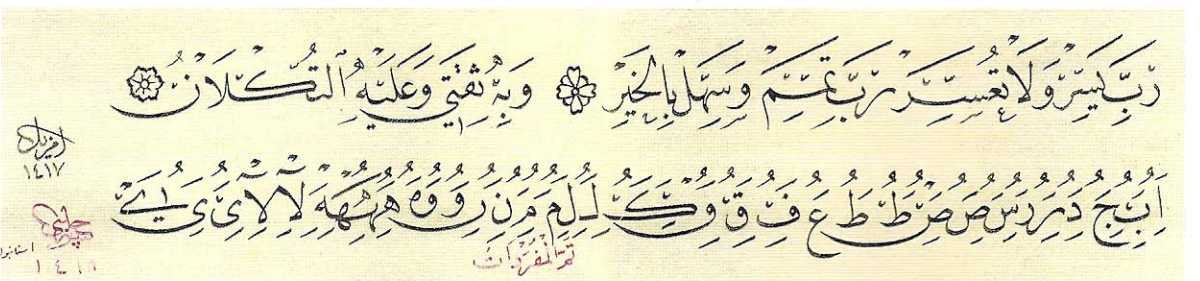 رَبِّ يَسِّرْ وَلَا تُعَسِّرْ رَبِّ تَمِّمْ وَسَهِّلْ بِالْخَيْرِ وَبِهِ ثِقَتِي وَعَلَيْهِ التُّكْلَانُ
١٤١٧
ا ب ج د ر س ص ط ط ع ف ق و ك ل م م ن و ه ه لا لا ى ى
تم المفردات